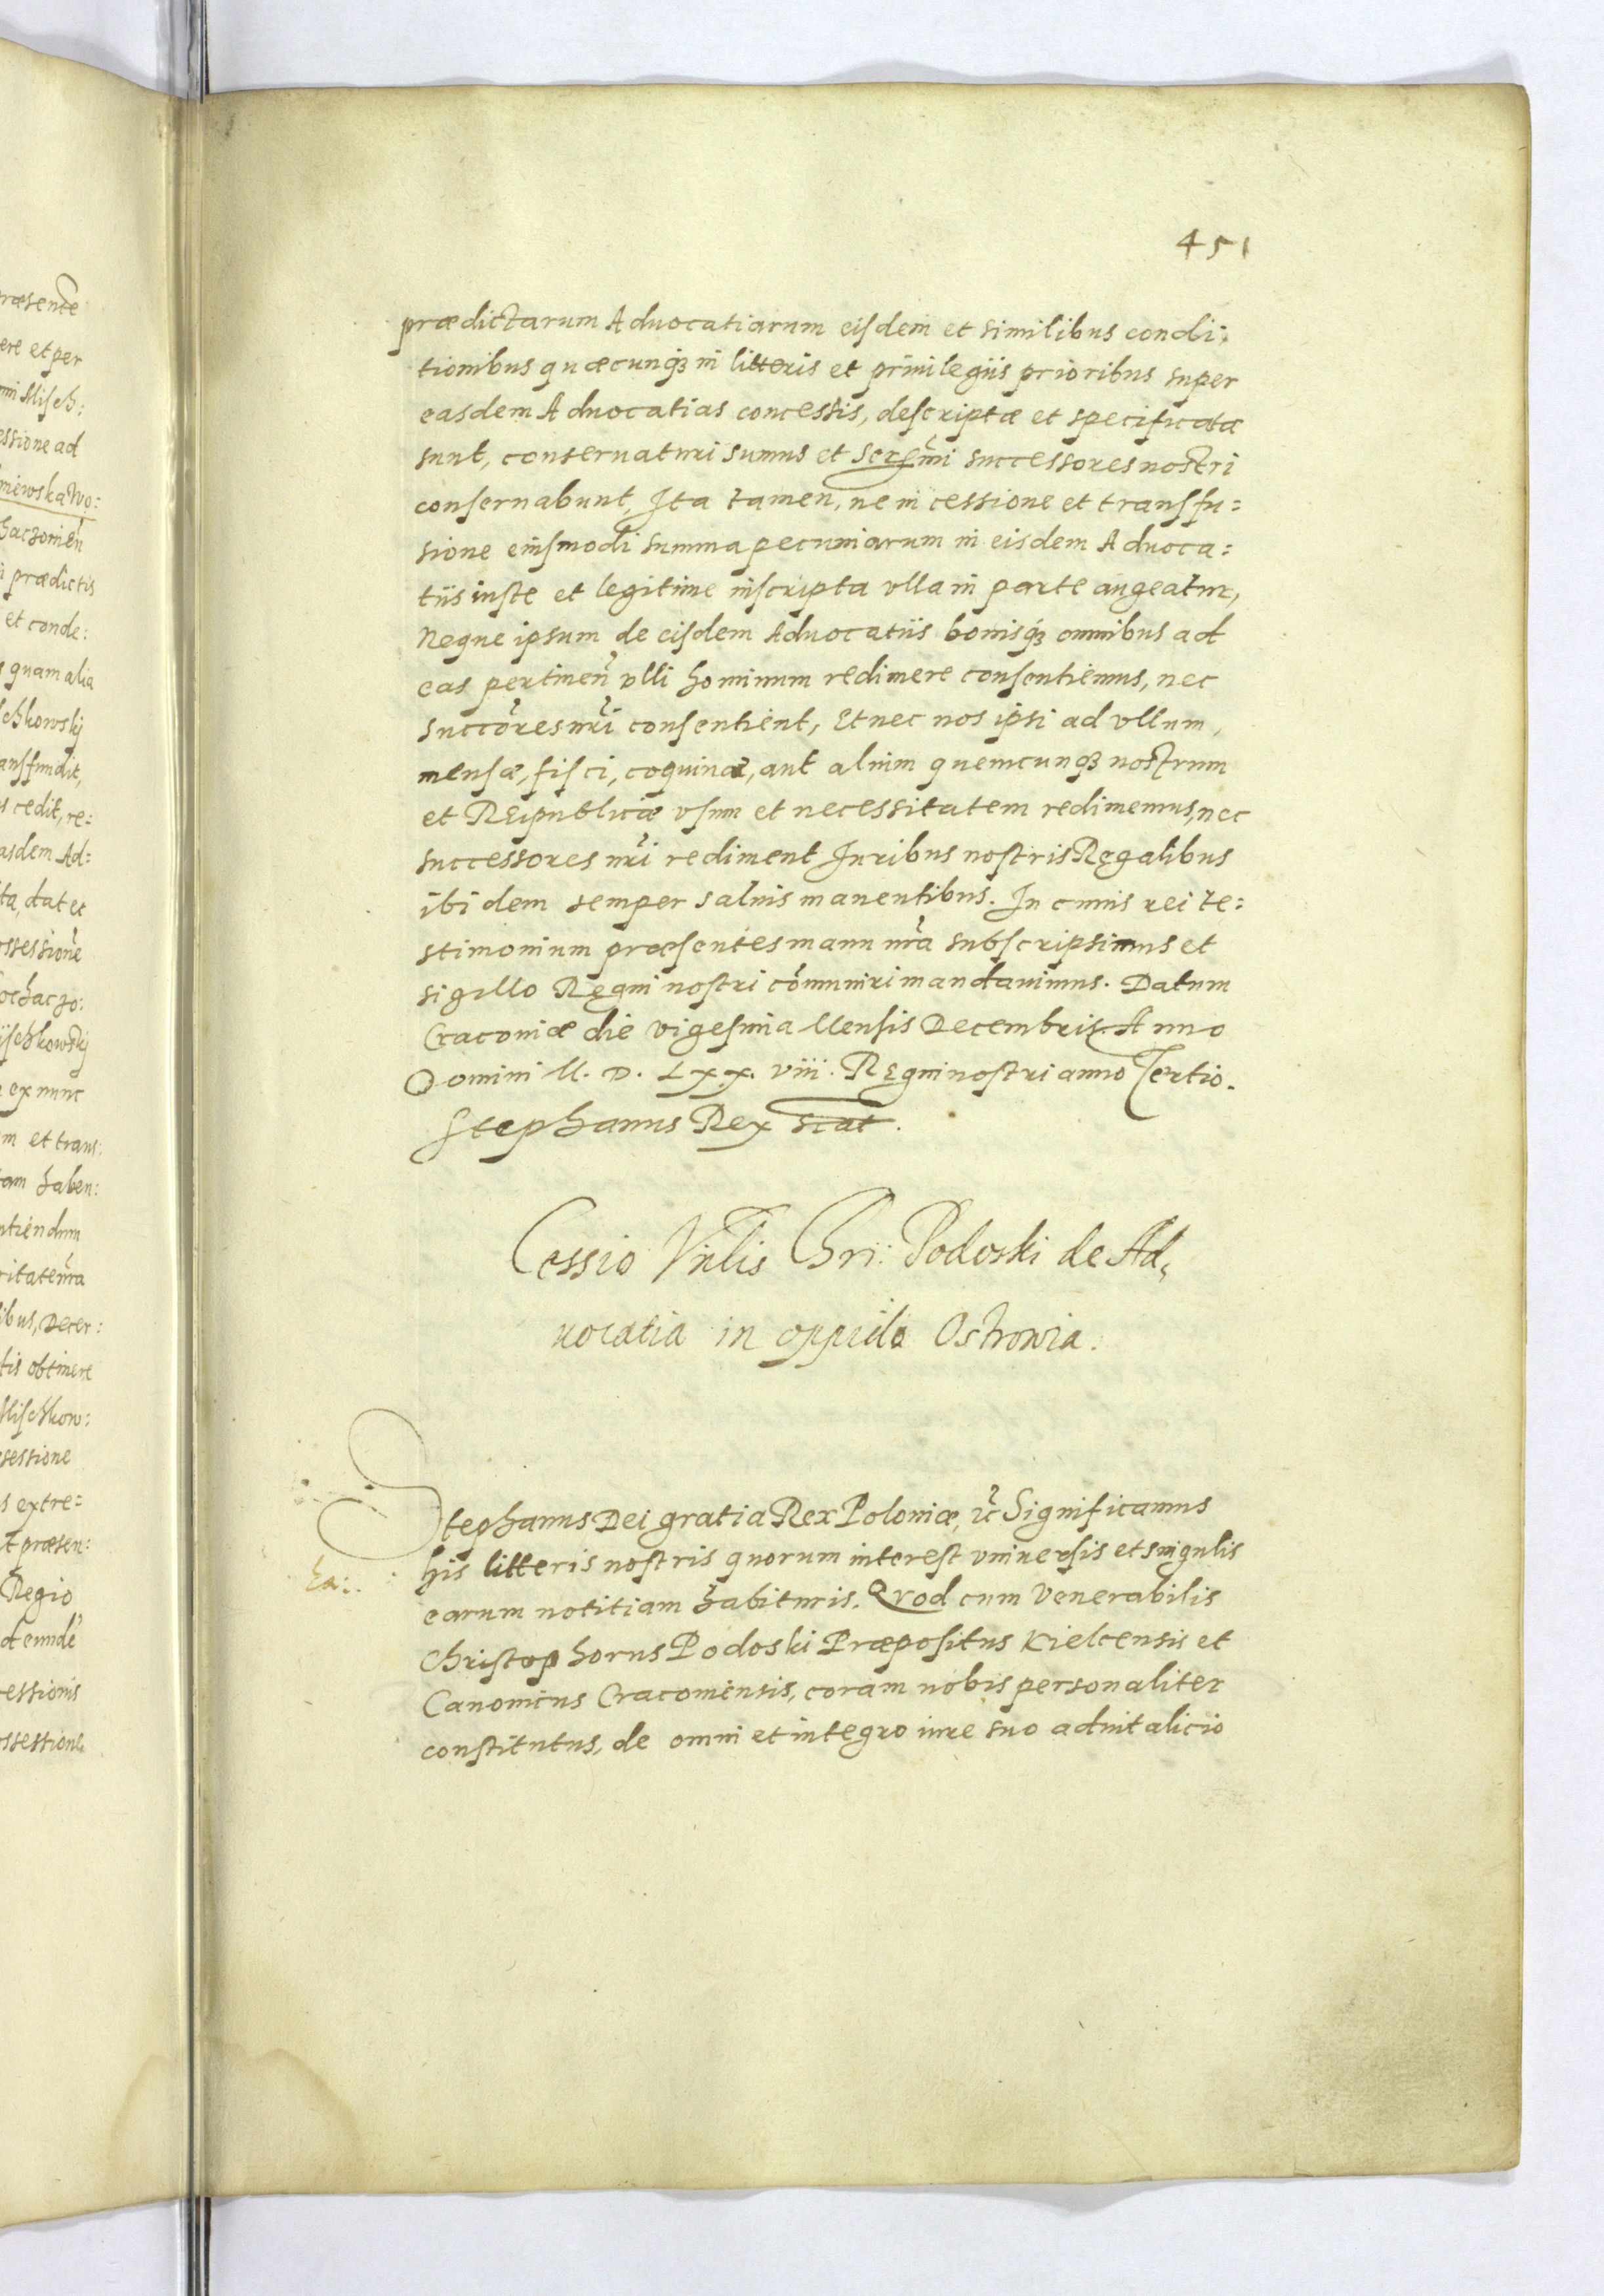 451
prædictarum Aduocatiarum eisdem et similibus condi:
tionibus quæcunqȝ in litteris et priuilegiis prioribus super
easdem Aduocatias concessis, descriptæ et specificatæ
sunt, conseruaturi sumus et Sereñmi successores nostri
conseruabunt, Ita tamen, ne in cessione et transfu=
sione eiusmodi summa pecuniarum in eisdem Aduoca=
tiis iuste et legitime inscripta vlla in parte augeatur,
Neque ipsum de eisdem Aduocatiis bonisqȝ omnibus ad
eas pertineñ vlli hominum redimere consentiemus, nec
succores nri consentient, Et nec nos ipsi ad vllum,
mensæ, fisci, coquinæ, aut alium quemcunqȝ nostrum
et REipublicæ vsum et necessitatem redimemus, nec
successores nri rediment Iuribus nostris Regalibus
ibidem semper saluis manentibus. In cuius rei te=
stimonium præsentes manu nra subscripsimus et
sigillo Regni nostri cõmuniri mandauimus. Datum
Cracouiæ die vigesima Mensis Decembris. Anno
Domini M. D. Lxx. viii. Regni nostri anno Tertio.
Stephanus Rex
Cessio Vnlis Chri: Podoski de Ad,
uocatia in oppido Ostrowia.
Stephanus Dei gratia Rex Poloniæ, ~c Significamus
his litteris nostris quorum interest vniuersis et singulis
earum notitiam habituris. Quod cum Venerabilis
Christophorus Podoski Præpositus Kielcensis et
Canonicus Cracouiensis, coram nobis personaliter
constitutus, de omni et integro iure suo aduitalicio
ræsente
ere et per
ssione ad
i prædictis
et conde:
quam alia
cedit, re=
asdem Ad=
ta, dat et
ex nunc
m et trans:
tam haben:
ibus, Decer:
tis obtinere
s extre=
t præsen:
Regio